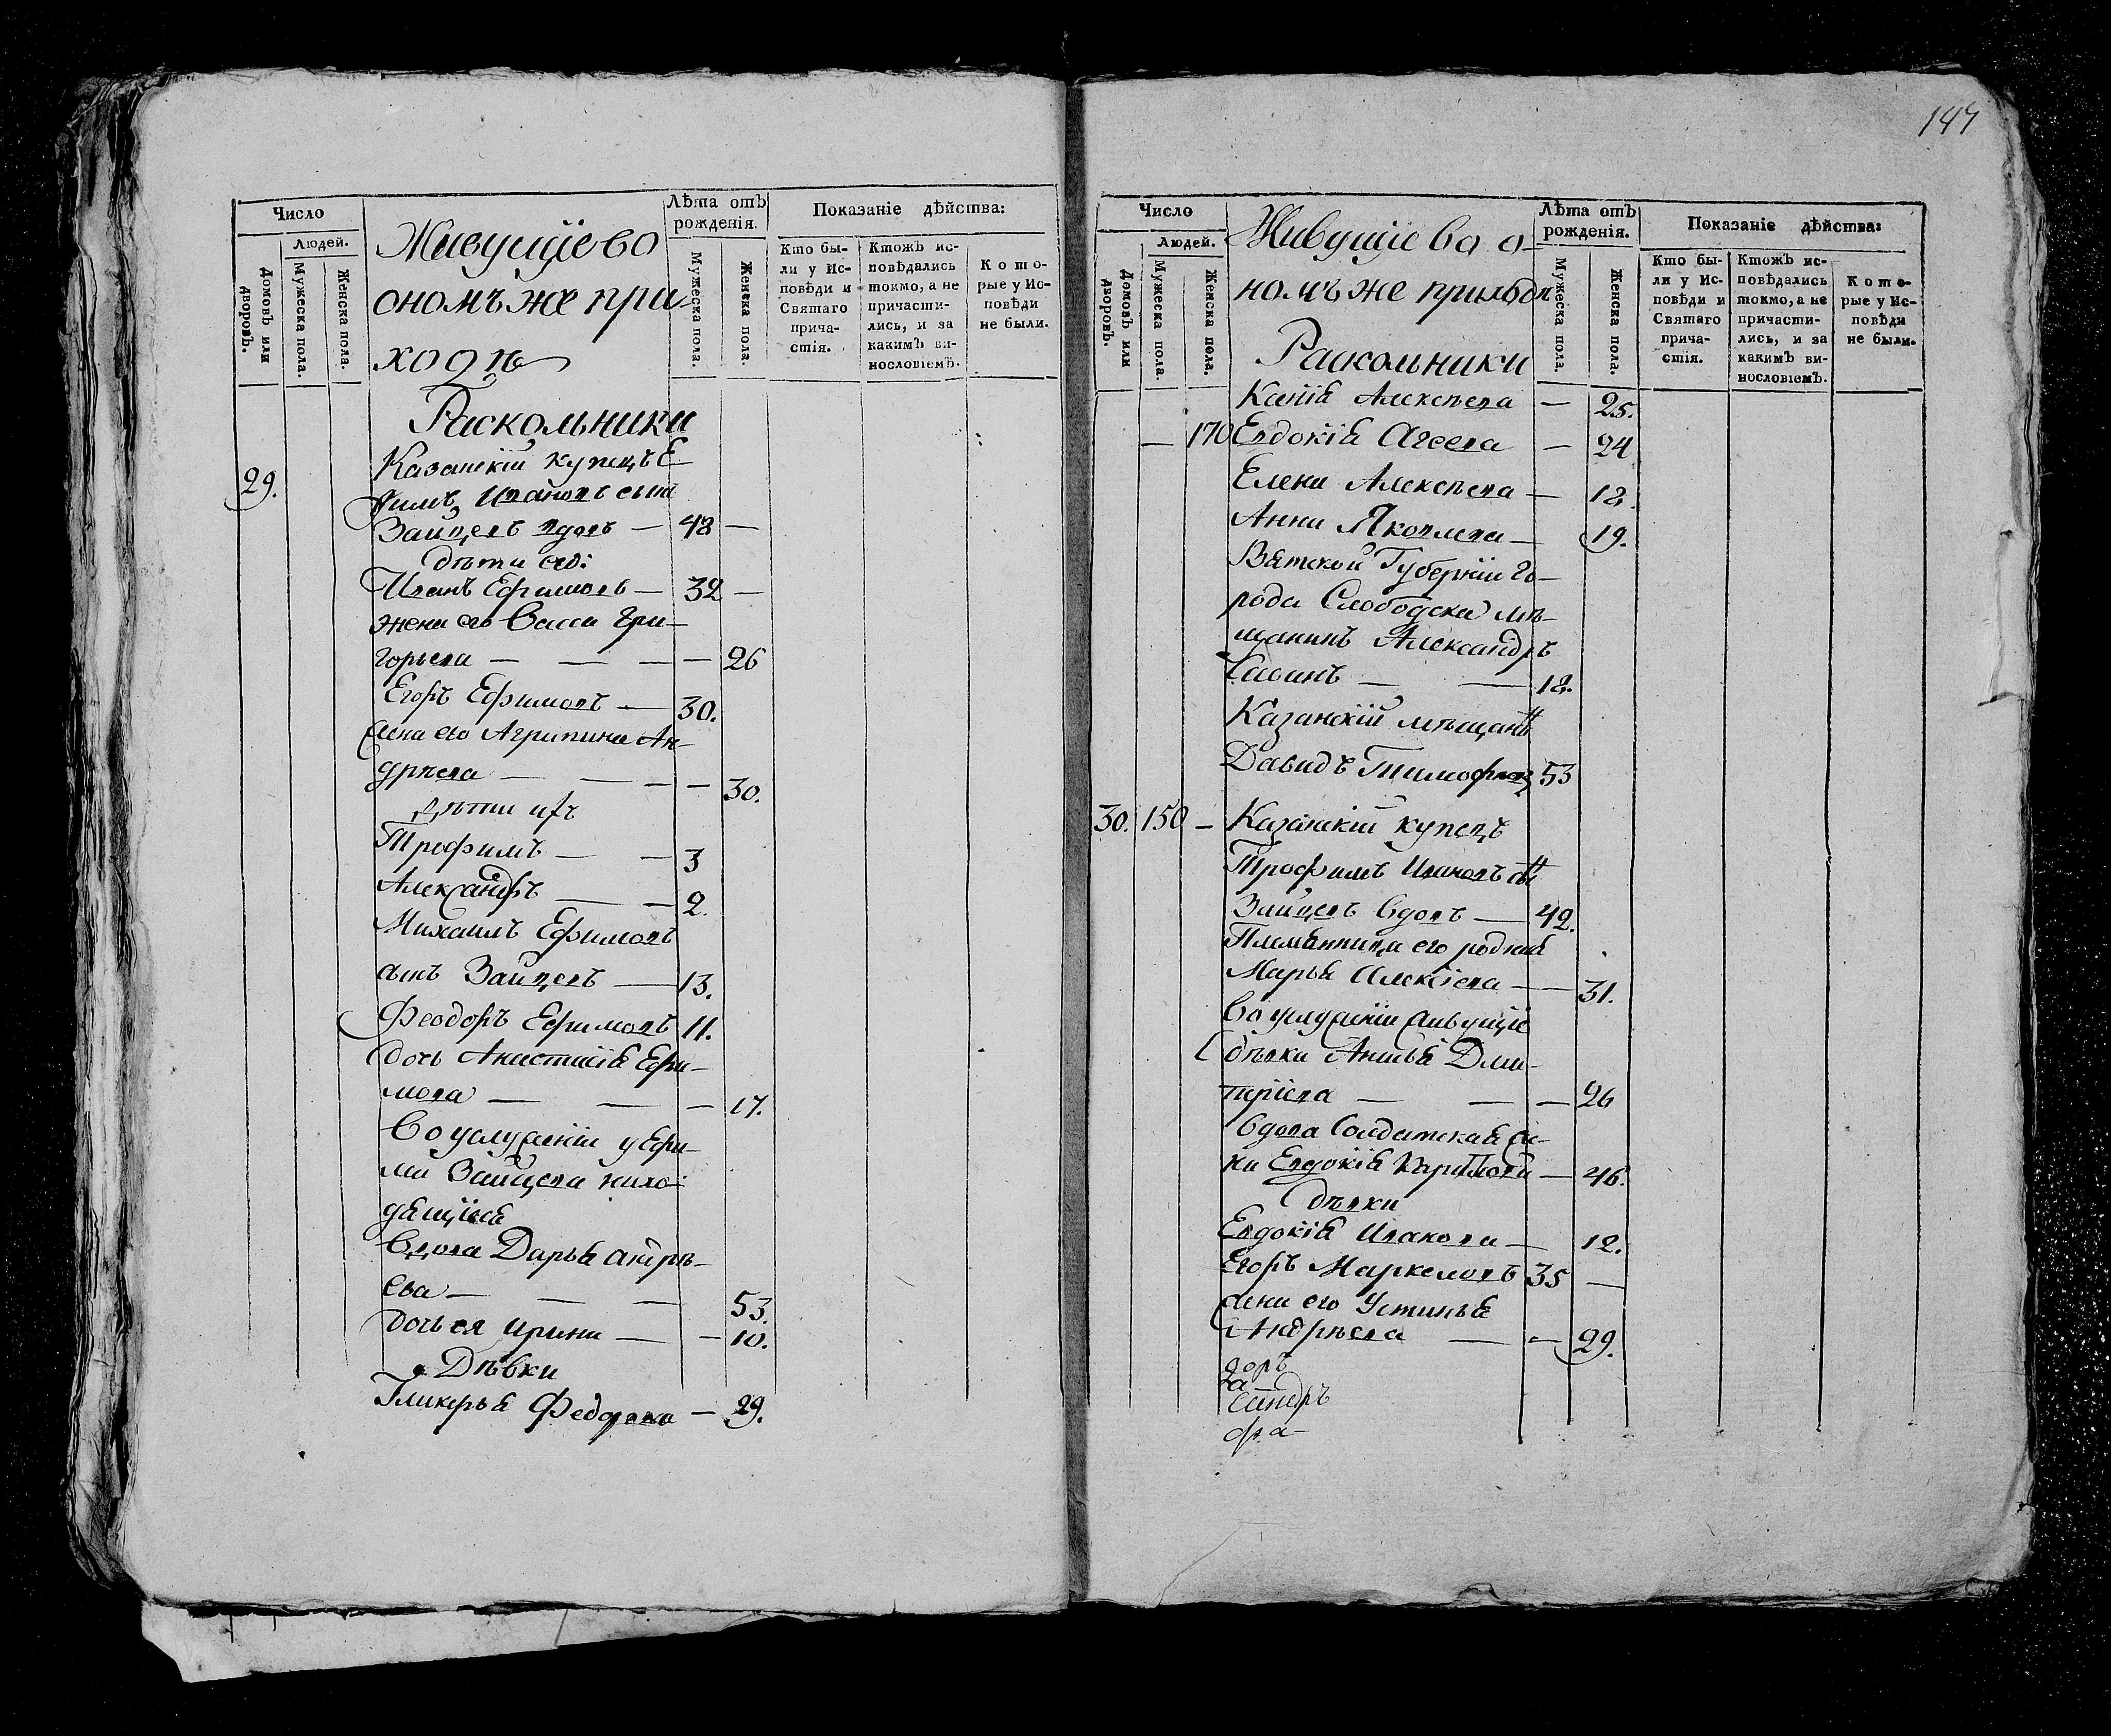 147
Число
Людей.
Домовъ или дворовъ.
Мужеска пола.
Женска пола.
Лѣта отъ рожденія.
Мужеска пола.
Женска пола.
Показаніе дѣйства:
Кто были у Исповѣди и Святаго причастія.
Ктожъ исповѣдались токмо, а не причастились, и за какимъ винословіемъ.
Которые у Исповѣди не были.
Живущіе во
ономъ же при-
ходѣ
Раскольники
29. Казанскій купецъ Е-
фимъ Ивановъ сынъ
Зайцевъ вдовъ — 48 —
дѣти его:
Иванъ Ефимовъ — 32 —
жена его Васса Гри-
горьева — — — — 26
Егоръ Ефимовъ — 30.
жена его Агрипина Ан-
дрѣева — — — — 30.
Дѣти ихъ
Трофимъ — — 3
Александръ — — 2.
Михаилъ Ефимовъ
сынъ Зайцевъ — 13.
Феодоръ Ефимовъ 11.
дочь Анастасія Ефи-
мова — — — 17.
Во услуженіи у Ефи-
ма Зайцева нахо-
дящіися
Вдова Дарья Андрѣ-
ева — — — 53.
Дочь ея Ирина — — 10.
Дѣвки
Гликерья Федорова — 29.
Число
Людей.
Домовъ или дворовъ.
Мужеска пола.
Женска пола.
Лѣта отъ рожденія.
Мужеска пола.
Женска пола.
Показаніе дѣйства:
Кто были у Исповѣди и Святаго причастія.
Ктожъ исповѣдались токмо, а не причастились, и за какимъ винословіемъ.
Которые у Исповѣди не были.
Живущіе во о-
номъ же приходѣ
Раскольники
Ксенія Алексѣева — 25.
— 170 Евдокія Агеева — 24
Елена Алексѣева — 18.
Анна Яковлева — 19.
Вятской Губерніи Го-
рода Слободска мѣ-
щанинъ Александръ
Савинъ — — 18.
Казанскій мѣщанинъ
Давидъ Тимофѣевъ 53
30. 150 — Казанскій купецъ
Трофимъ Ивановъ сынъ
Зайцевъ вдовъ — 42.
Племянница его родная
Марья Алексіева — — 31.
Во услуженіи живущіе
дѣвки Анисья Дми-
тріева — — — 26
Вдова Солдатская же-
на Евдокія — 46.
дѣвки
Евдокія Иванова — 12.
Егоръ Маркеловъ 35 —
жена его Устинья
Андрѣева — — 29.